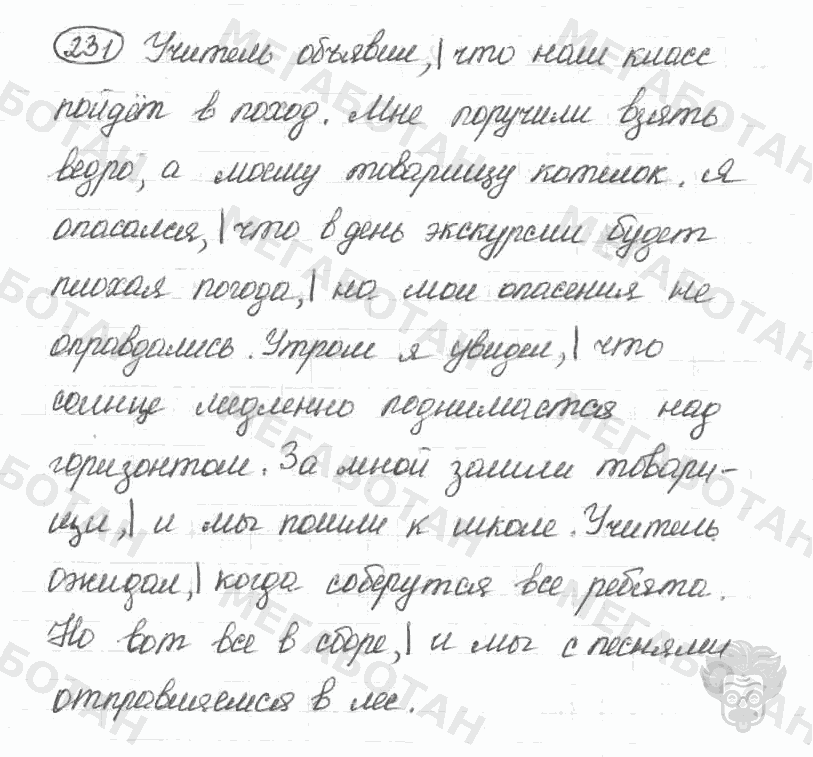 231 Учитель объявил,| что наш класс
пойдёт в поход. Мне поручили взять
ведро, а моему товарищу котелок. Я
опасался,| что в день экскурсии будет
плохая погода,| но мои опасения не
оправдались. Утром я увидел,| что
солнце медленно поднимается над
горизонтом. За мной зашли товари-
щи,| и мы пошли к школе. Учитель
ожидал,| когда соберутся все ребята.
Но вот все в сборе,| и мы с песнями
отправляемся в лес.
МЕГАБОТАН